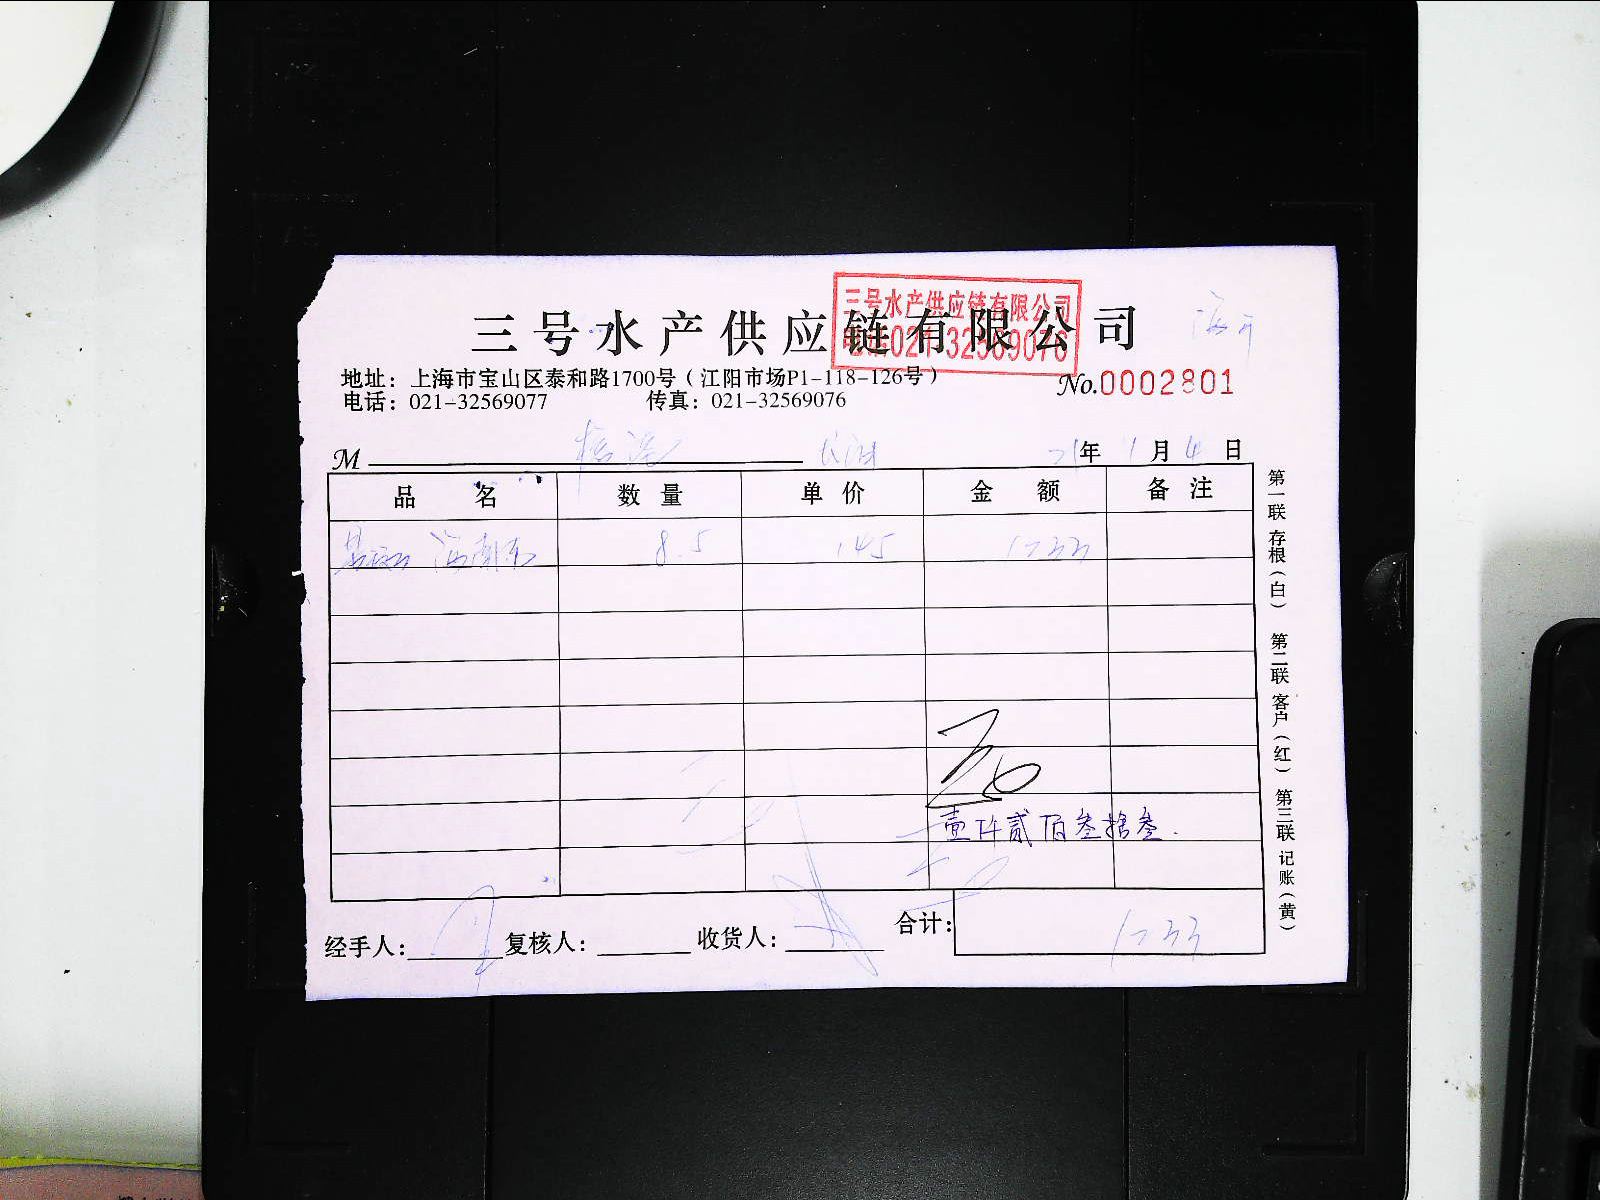 三号水产供应链有限公司
三号水产供应链有限公司
电话:021-32569076
地址：上海市宝山区泰和路1700号（江阳市场P1-118-126号）
No.0002801
电话：021-32569077 传真：021-32569076
M 21年 1月 4日
品名 数量 单价 金额 备注
海南东 8.5 145 1233
壹仟贰佰叁拾叁.
经手人: 复核人: 收货人: 合计: 1233
第一联 存根（白） 第二联 客户（红） 第三联 记账（黄）